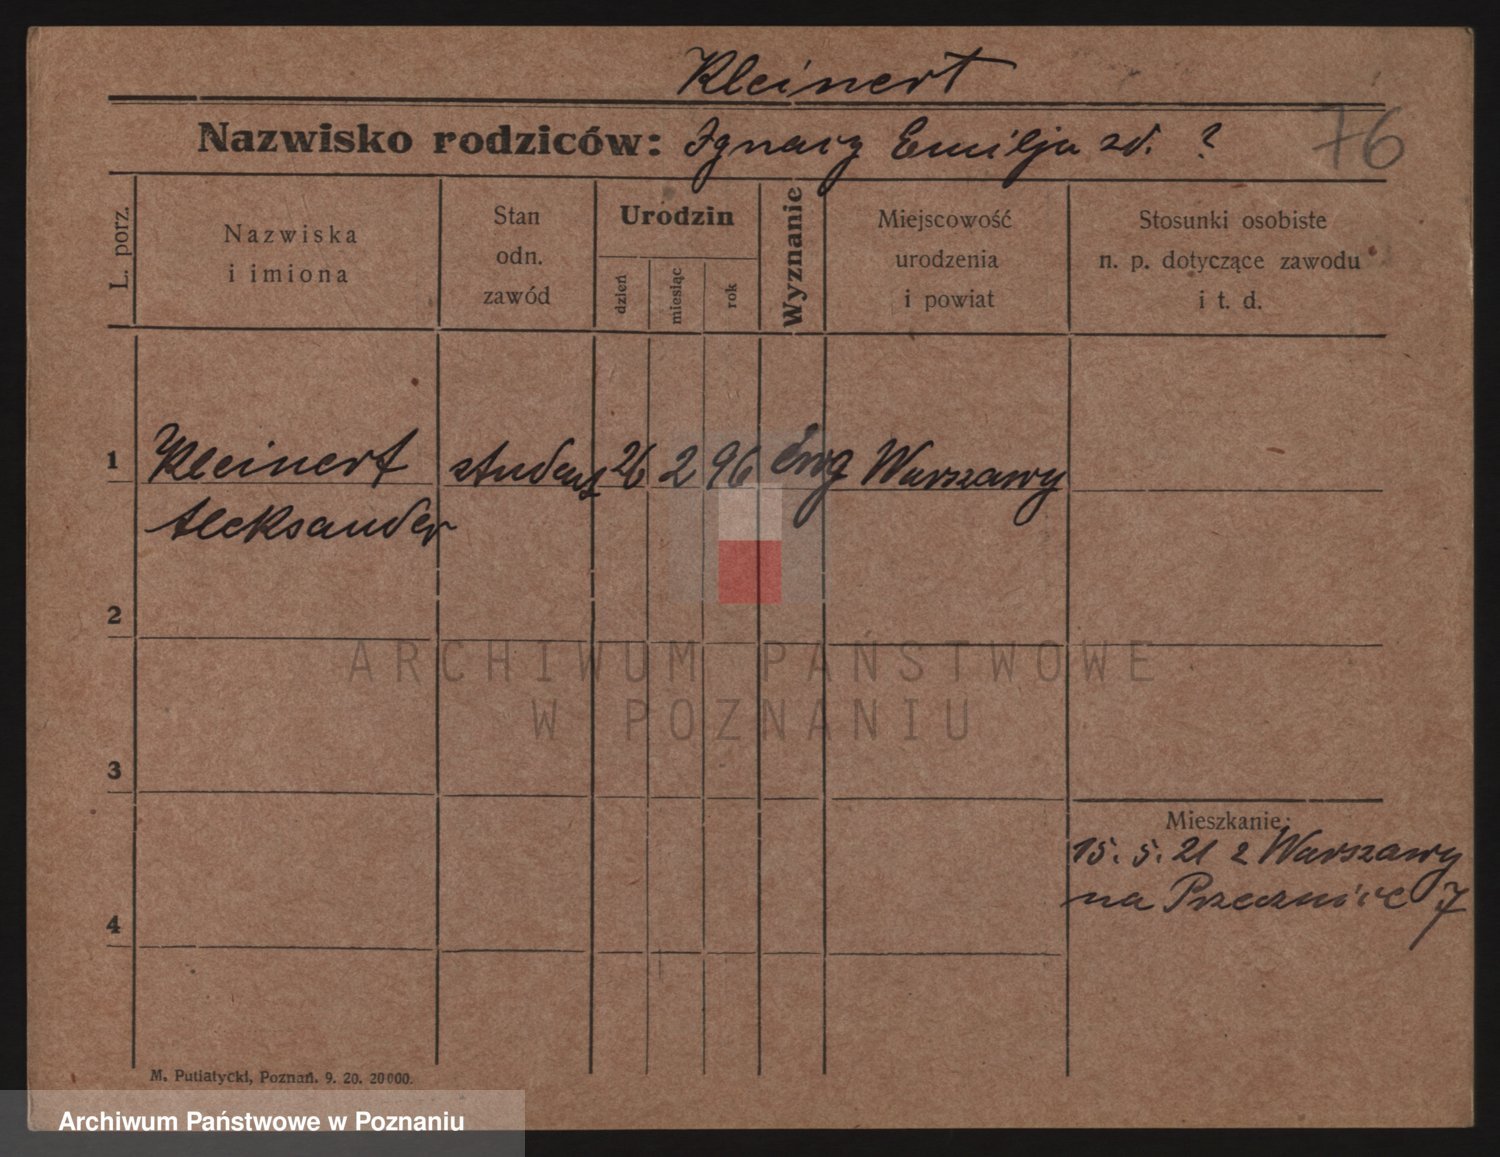 Kleinert
Nazwisko rodziców: Ignacy Emilja zd. ?
76
L. porz.
Nazwiska
i imiona
Stan
odn.
zawód
Urodzin
dzień
miesiąc
rok
Wyznanie
Miejscowość
urodzenia
i powiat
Stosunki osobiste
n. p. dotyczące zawodu
i t. d.
1 Kleinert student 26 2 96 Ewg Warszawy
Aleksander
2
3
4
Mieszkanie:
15. 5. 21 z Warszawy
na Przecznice 7
M. Putiatycki, Poznań. 9. 20. 20000.
ARCHIWUM PAŃSTWOWE
W POZNANIU
Archiwum Państwowe w Poznaniu